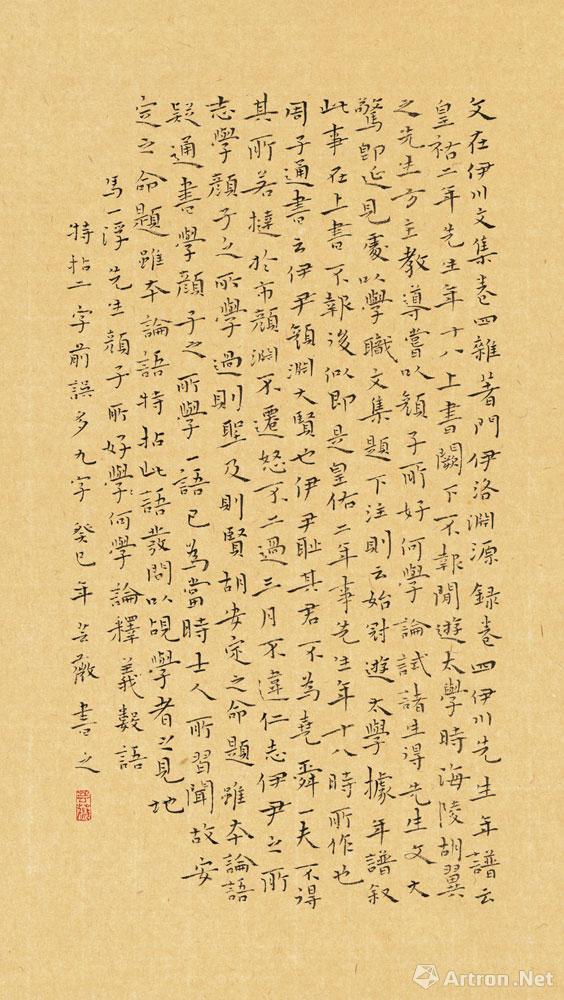 文在伊川文集卷四雜著門伊洛淵源録卷四伊川先生年譜云
皇祐二年先生年十八上書闕下不報閒遊太學時海陵胡翼
之先生方主教導嘗以顏子所好何學論試諸生得先生文大
驚即延見處以學職文集題下注則云始冠遊太學據年譜叙
此事在上書不報後似即是皇佑二年事先生年十八時所作也
周子通書云伊尹顏淵大賢也伊尹耻其君不為堯舜一夫不得
其所若撻於市顏淵不遷怒不二過三月不違仁志伊尹之所
志學顏子之所學過則聖及則賢胡安定之命題雖本論語
疑通書學顏子之所學一語已為當時士人所習聞故安
定之命題雖本論語特拈此語發問以覘學者之見地
馬一浮先生顏子所好學何學論釋義數語
特拈二字前誤多九字 癸巳年芸薇書之
Artron.Net